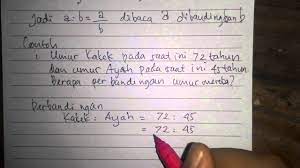 Jadi a : b = a/b dibaca a dibandingkan b
Contoh
1. Umur Kakek pada saat ini 72 tahun
dan umur Ayah pada saat ini 45 tahun
berapa perbandingan umur mereka?
Perbandingan
Kakek : Ayah = 72 : 45
= 72 : 45